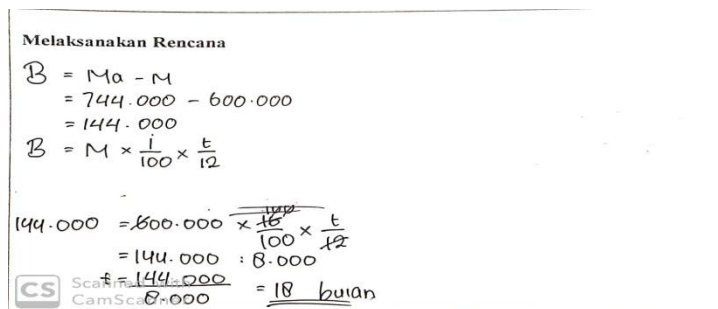 Melaksanakan Rencana
B = Ma - M
= 744.000 - 600.000
= 144.000
B = M × i/100 × t/12
144.000 = 600.000 × 16/100 × t/12
= 144.000 : 8.000
t = 144.000/8.000 = 18 bulan
CS Scanned with
CamScanner